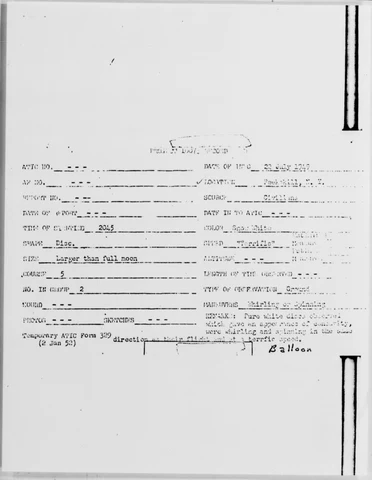 ATIC NO. - - - DATE OF INFO 22 July
AF NO. - - - LOCATION
REPORT NO. - - - SOURCE Civilians
DATE OF REPORT - - - DATE IN TO ATIC - - -
TIME OF SIGHTING 2045 COLOR White
SHAPE Disc. SPEED "Terrific"
SIZE Larger than full moon ALTITUDE - - -
COURSE S LENGTH OF TIME OBSERVED - - -
NO. IN GROUP 2 TYPE OF OBSERVATION Ground
SOUND - - - MANEUVERS Whirling or Spinning
PHOTOS - - - SKETCHES - - - REMARKS: Pure white discs observed
which gave an appearance of
were whirling and spinning in the same
Temporary ATIC Form 329
(2 Jan 52) direction as their flight and at terrific speed.
Balloon